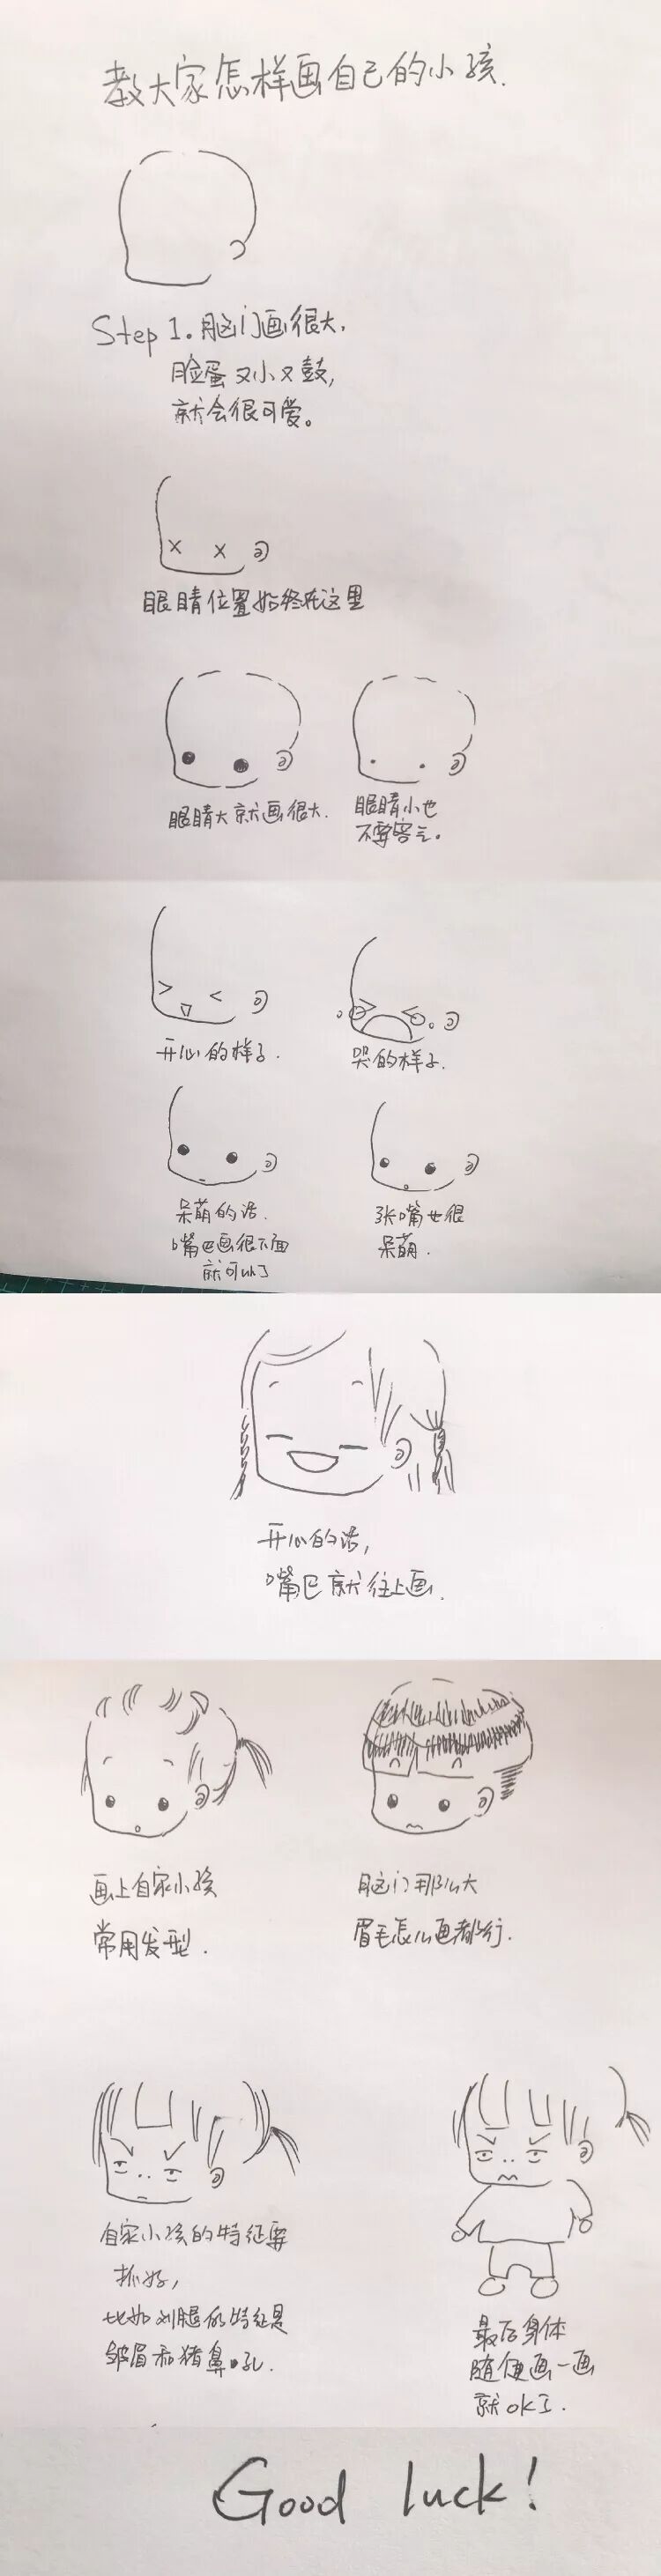 教大家怎样画自己的小孩.
Step 1. 脑门画很大,
脸蛋又小又鼓,
就会很可爱。
眼睛位置始终在这里
眼睛大就画很大.
眼睛小也
不要客气。
开心的样子.
哭的样子.
呆萌的话.
嘴巴画很下面
就可以了
张嘴也很
呆萌.
开心的话,
嘴巴就往上画.
画上自家小孩
常用发型.
脑门那么大
眉毛怎么画都行.
自家小孩的特征要
抓好,
比如刘腿的特征是
皱眉和猪鼻孔.
最后身体
随便画一画
就ok了.
Good luck!